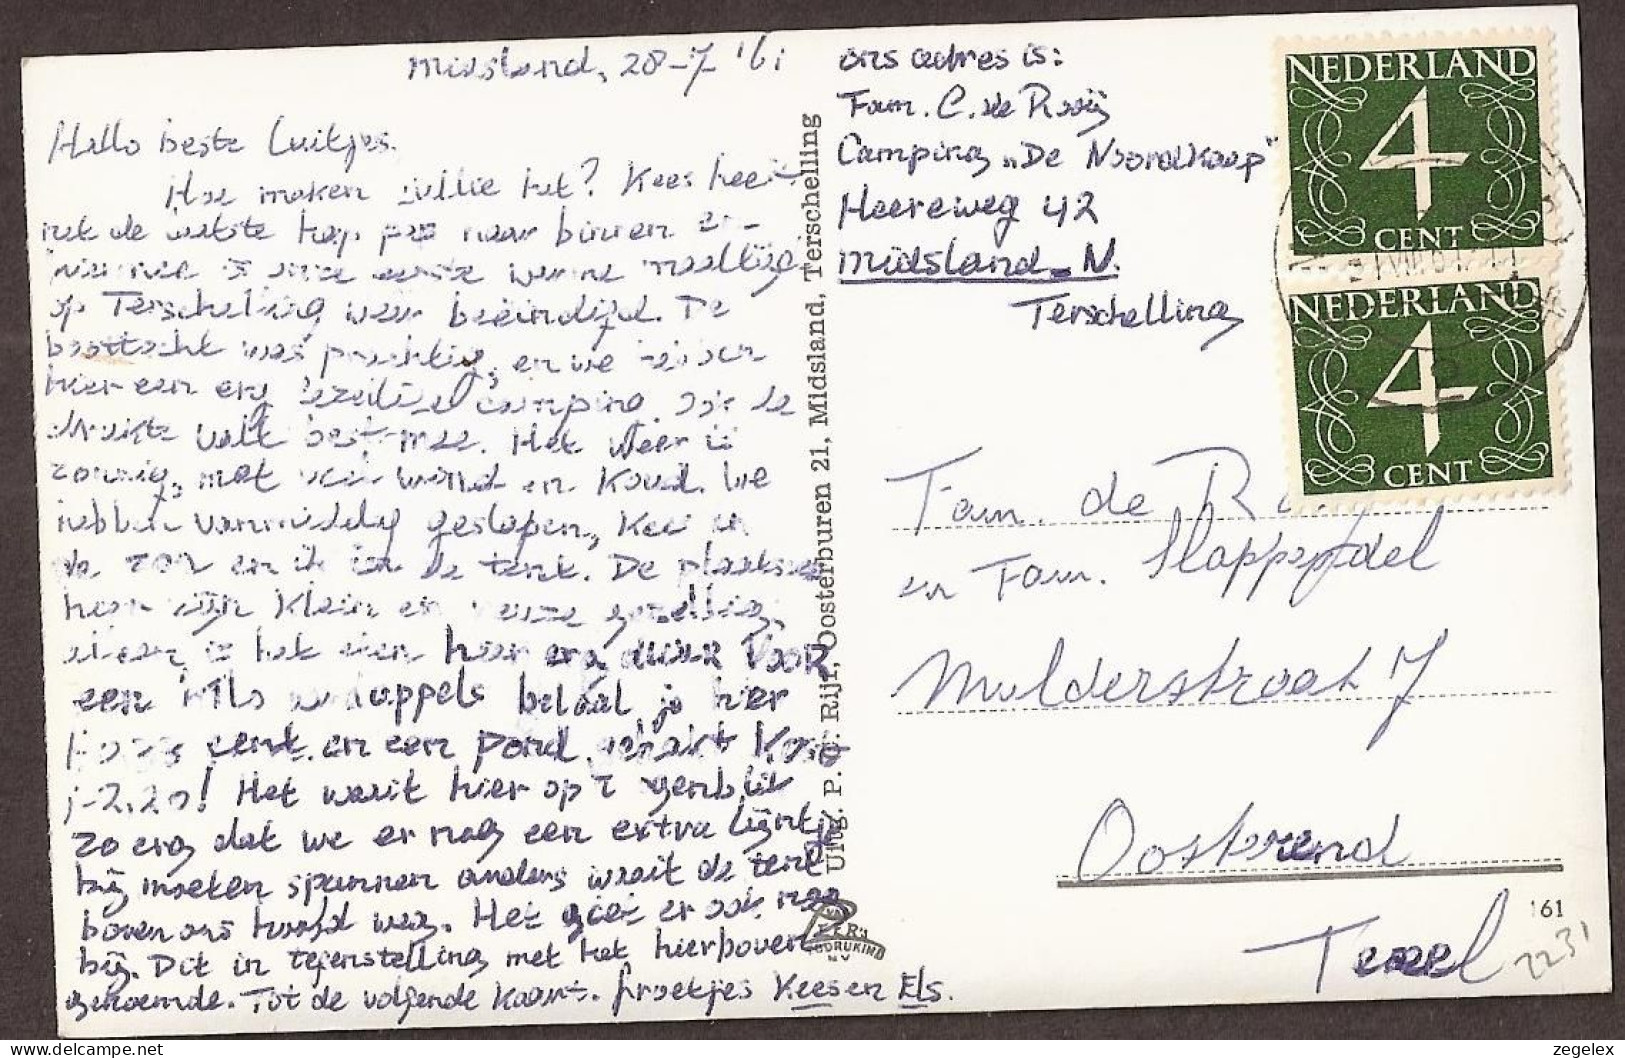 Midsland, 28-7 '61
Hallo beste Luitjes.
Hoe maken jullie het? Kees heeft
net de laatste hap pap naar binnen en
is onze eerste warme maaltijd
op Terschelling weer beëindigd. De
boottocht was prachtig, en we hebben
hier een erg camping. Ook de
drukte valt best mee. Het weer is
zonnig, met veel wind en koud. We
hebben vanmiddag geslapen, Kees in
de zon en ik in de tent. De plaatsen
hier zijn klein en gezellig,
alleen is het eten hier erg duur voor
een kilo aardappels betaal je hier
cent. en een pond kost
f-2.20! Het wait hier op 't ogenblik
zo erg dat we er nog een extra lijntje
bij moeten spannen anders wait de tent
boven ons hoofd weg. Het giet er ook nog
bij. Dit in tejenstelling met het hierboven
genoemde. Tot de volgende kaart. Groetjes Kees en Els.
ons adres is:
Fam. C. de Rooij
Camping "De Noordkaap"
Heereweg 42
Midsland-N.
Terschelling
Uitg. P. C. Rijf, Oosterburen 21, Midsland, Terschelling
NEDERLAND
4
CENT
NEDERLAND
4
CENT
Fam. de R
en Fam. Slappendel
Mulderstraat 7
Oosterend
Texel
161
2231
zegelex
delcampe.net